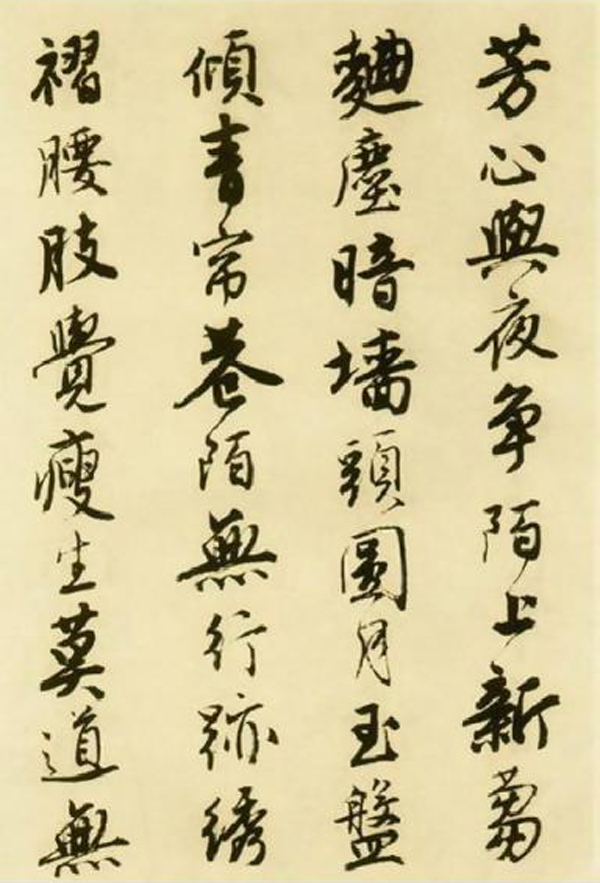 芳心與夜争陌上新蒭
麯塵暗墙頭圓月玉盤
傾青帘巷陌無行跡綉
褶腰肢覺瘦生莫道無